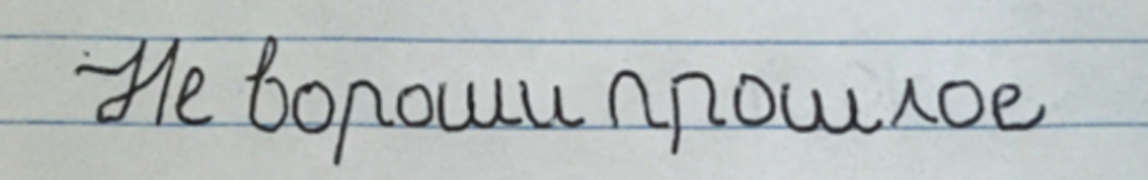 Не вороши прошлое